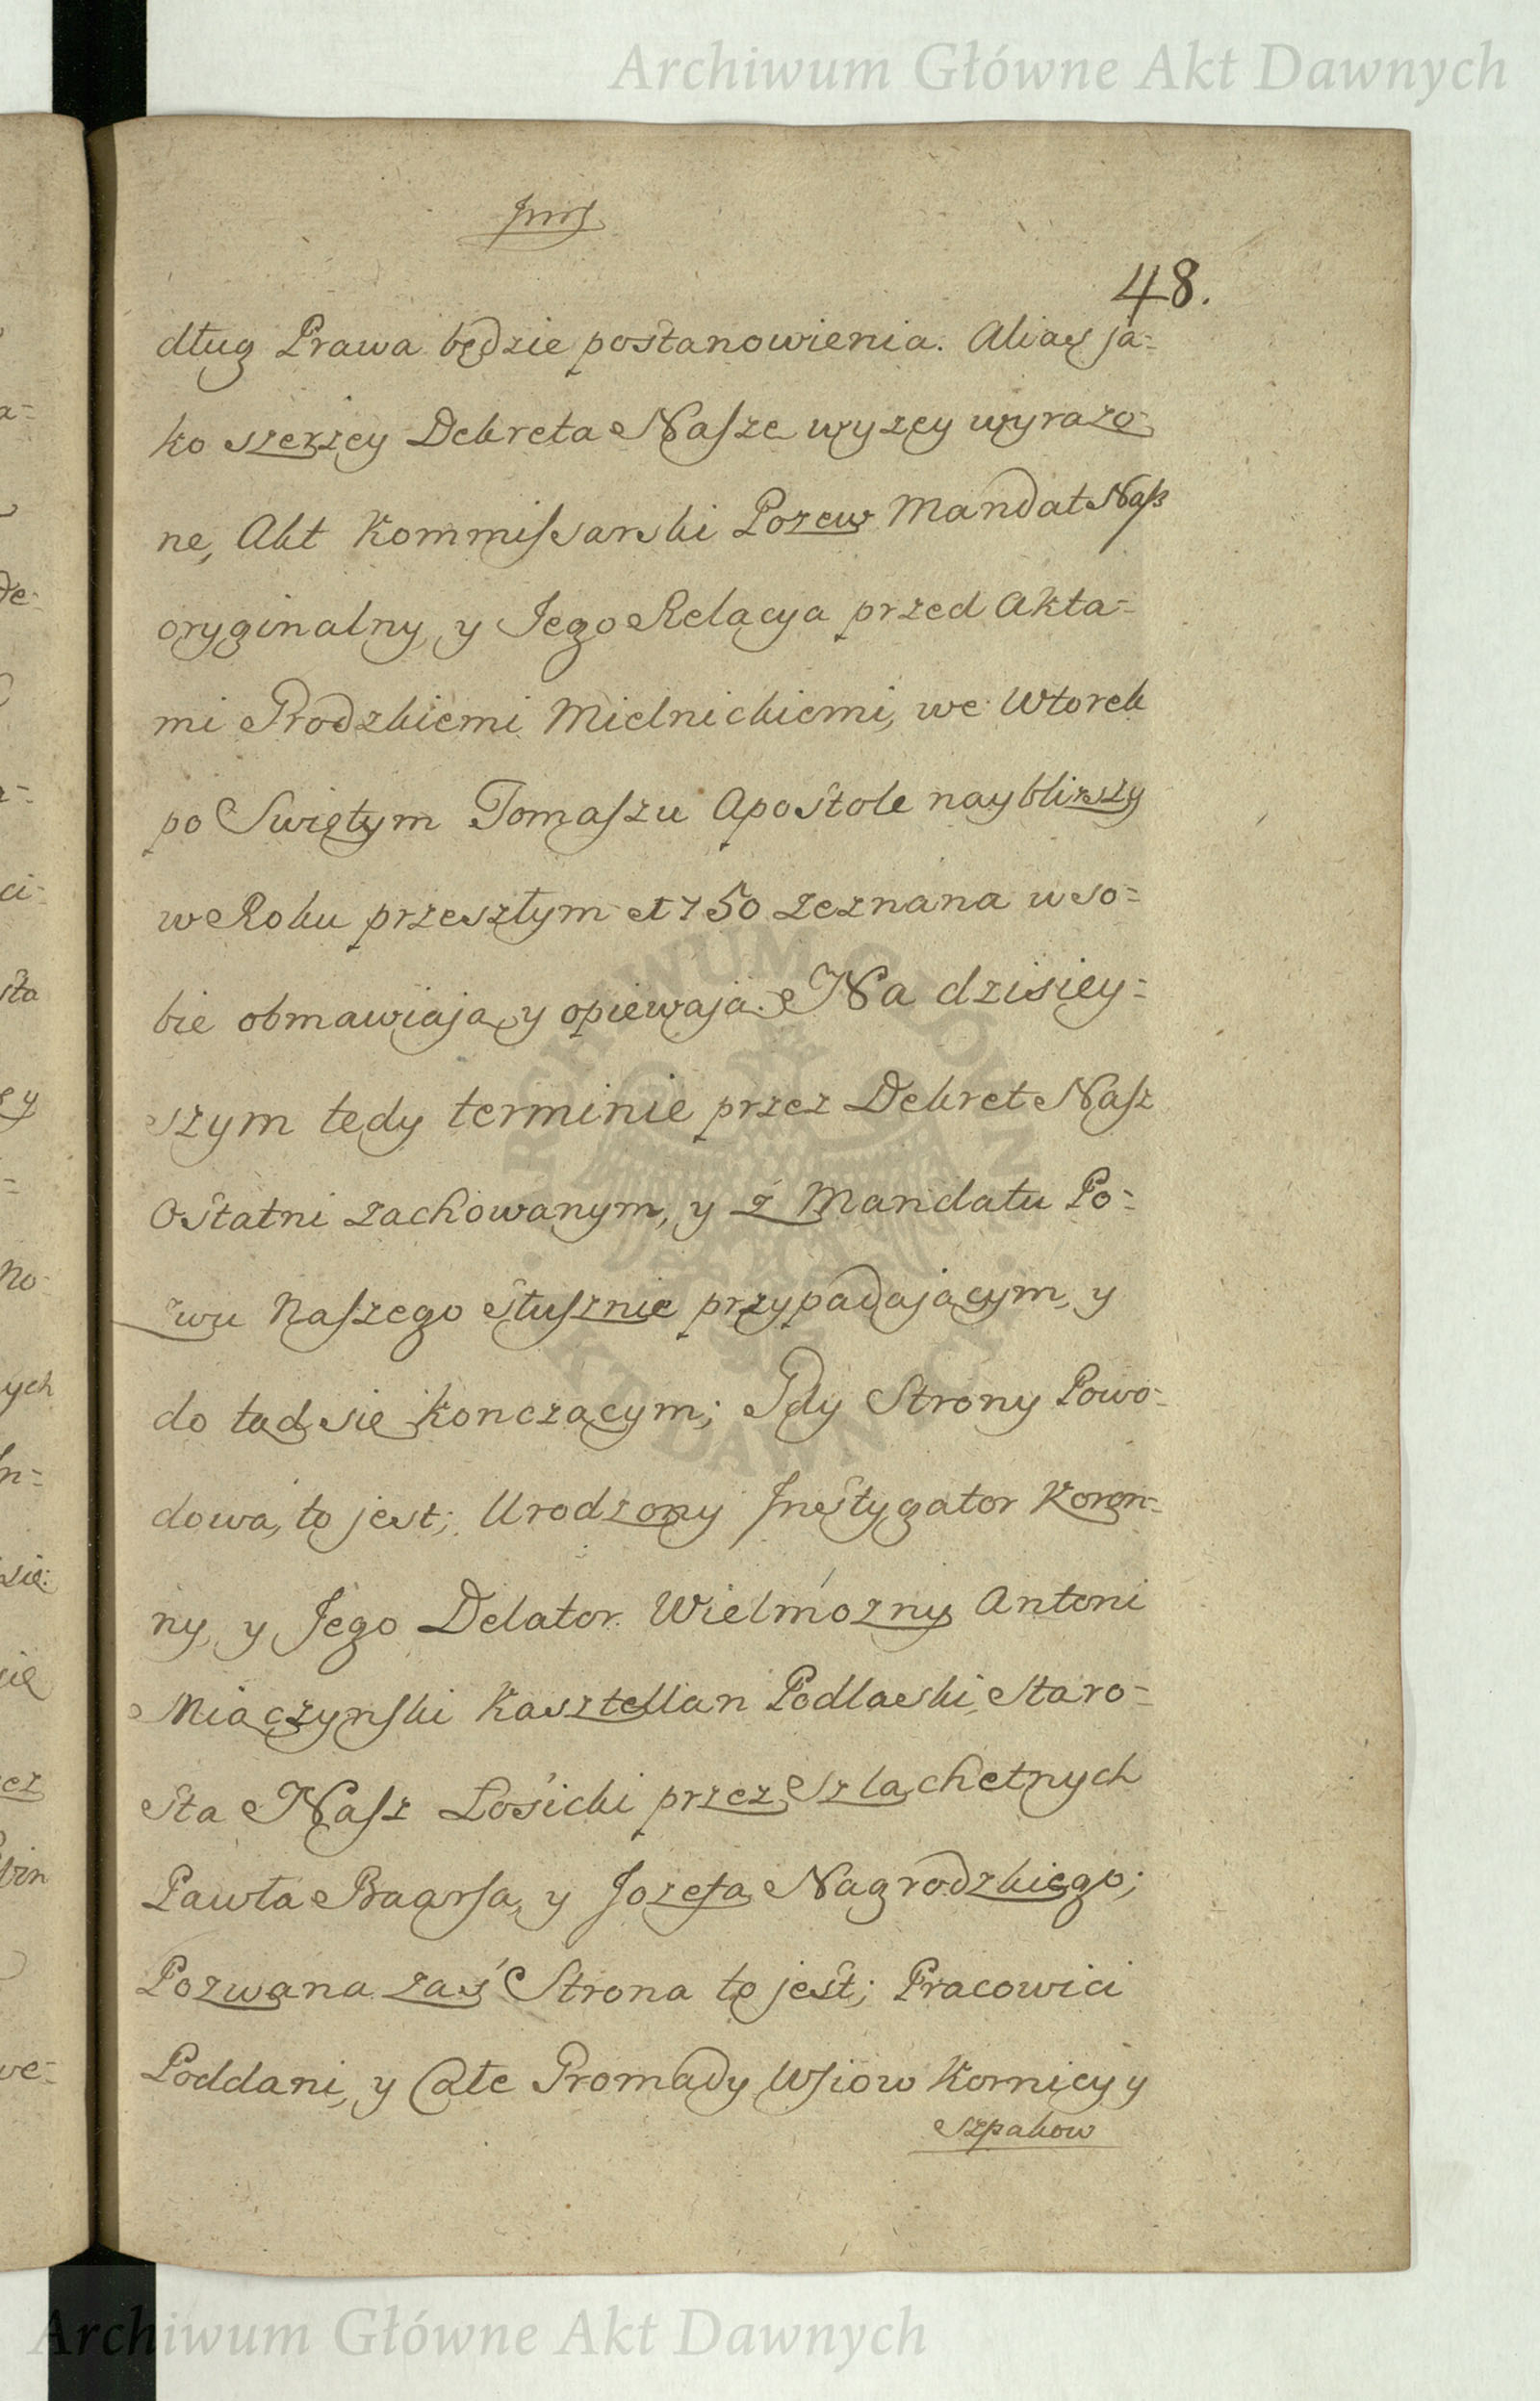 Archiwum Główne Akt Dawnych
48.
dług Prawa będzie postanowienia. Alias ja=
ko szerzey Dekreta Nasze wyzey wyrazo
ne, Akt Kommissarski Pozew Mandat Nasz
oryginalny, y Jego Relacya przed Akta=
mi Grodzkiemi Mielnickiemi, we Wtorek
po Swiętym Tomaszu Apostole nayblizszy
w Roku przeszłym 1750 zeznana w so=
bie obmawiaią, y opiewaią. Na dzisiey=
szym tedy terminie przez Dekret Nasz
Ostatni zachowanym, y z Mandatu Po=
zwu Naszego słusznie przypadaiącym, y
do tąd się konczącym; Gdy Strony Powo=
dowa, to jest; Urodzony Instygator Koron=
ny, y Jego Delator Wielmozny Antoni
Miączynski Kasztellan Podlaski, Staro=
sta Nasz Łosicki przez Szlachetnych
Pawła Baarsa, y Jozefa Nagrodzkiego;
Pozwana zaś Strona to jest; Pracowici
Poddani, y Całe Gromady Wsiow Kornicy y
Szpakow
Archiwum Główne Akt Dawnych